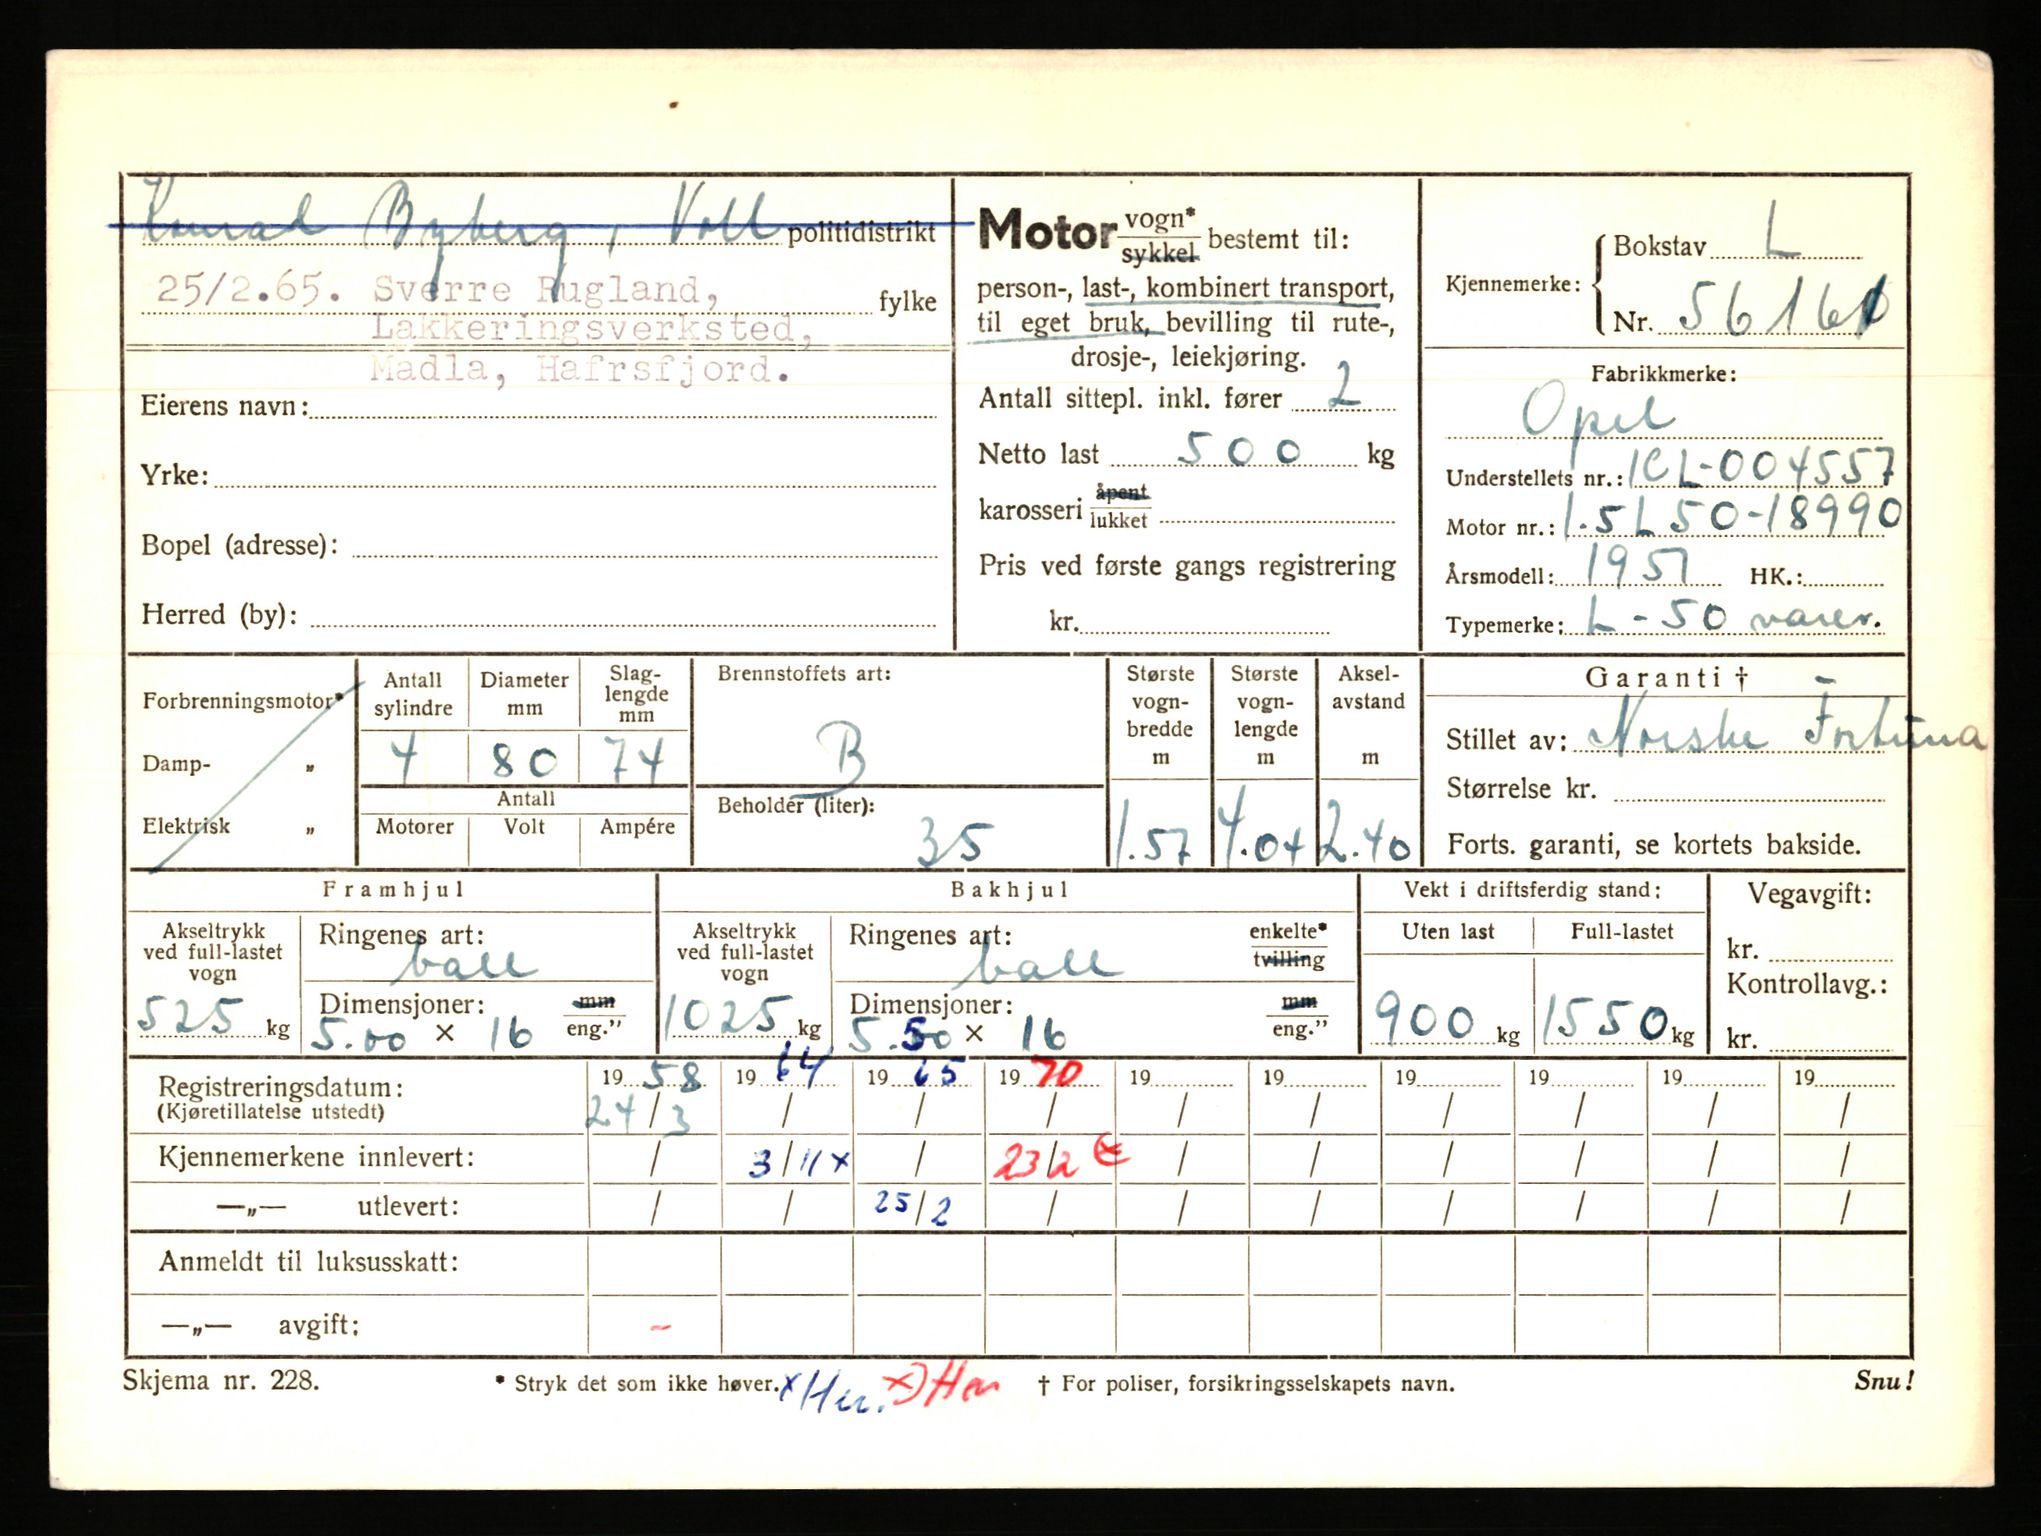 Konrad Byberg, Voll politidistrikt
25/2.65. Sverre Rugland,
fylke
Lakkeringsverksted,
Madla, Hafrsfjord.
Eierens navn:
Yrke:
Bopel (adresse):
Herred (by):
Motor vogn* sykkel bestemt til:
person-, last-, kombinert transport,
til eget bruk, bevilling til rute-,
drosje-, leiekjøring.
Antall sittepl. inkl. fører 2
Netto last 500 kg
karosseri åpent lukket
Pris ved første gangs registrering
kr.
Kjennemerke: Bokstav L
Nr. 56161
Fabrikkmerke:
Opel
Understellets nr.: 1CL-004557
Motor nr.: 1.5L50-18990
Årsmodell: 1951 HK.:
Typemerke: L-50 varev.
Forbrenningsmotor*
Damp- „
Elektrisk „
Antall sylindre
Diameter mm
Slag-lengde mm
4 80 74
Antall
Motorer Volt Ampére
Brennstoffets art:
B
Beholder (liter):
35
Største vogn-bredde m
1.57
Største vogn-lengde m
4.04
Aksel-avstand m
2.40
Garanti †
Stillet av: Norske Fortuna
Størrelse kr.
Forts. garanti, se kortets bakside.
Framhjul
Akseltrykk ved full-lastet vogn
525 kg
Ringenes art:
ball
Dimensjoner: mm
5.00 × 16 eng."
Bakhjul
Akseltrykk ved full-lastet vogn
1025 kg
Ringenes art: enkelte*
ball tvilling
Dimensjoner: mm
5.50 × 16 eng."
Vekt i driftsferdig stand:
Uten last Full-lastet
900 kg 1550 kg
Vegavgift:
kr.
Kontrollavg.:
kr.
Registreringsdatum: 1958 1964 1965 1970 19 19 19 19 19 19
(Kjøretillatelse utstedt) 24/3 / / / / / / / / /
Kjennemerkene innlevert: / 3/11 x / 23/2 x / / / / / /
—„— utlevert: / / 25/2 / / / / / / /
Anmeldt til luksusskatt:
—„— avgift: -
Skjema nr. 228.
* Stryk det som ikke høver.
† For poliser, forsikringsselskapets navn.
Snu!